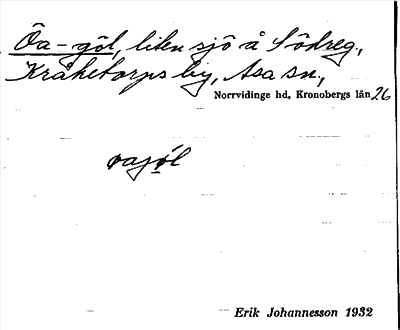 Öa-göl, liten sjö å Södreg.,
Kråketorps by, Asa sn.,
Norrvidinge hd, Kronobergs län 26
øajøl
Erik Johannesson 1932